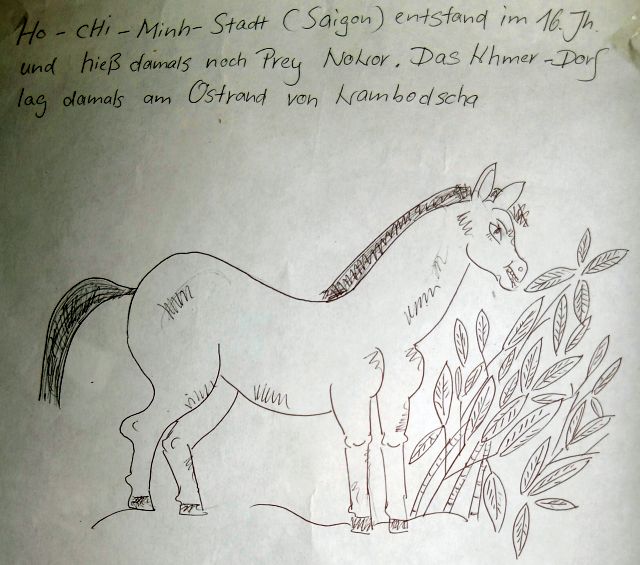 Ho-cHi-Minh-Stadt (Saigon) entstand im 16. Jh.
und hieß damals noch Prey Nokor. Das Khmer-Dorf
lag damals am Ostrand von Kambodscha